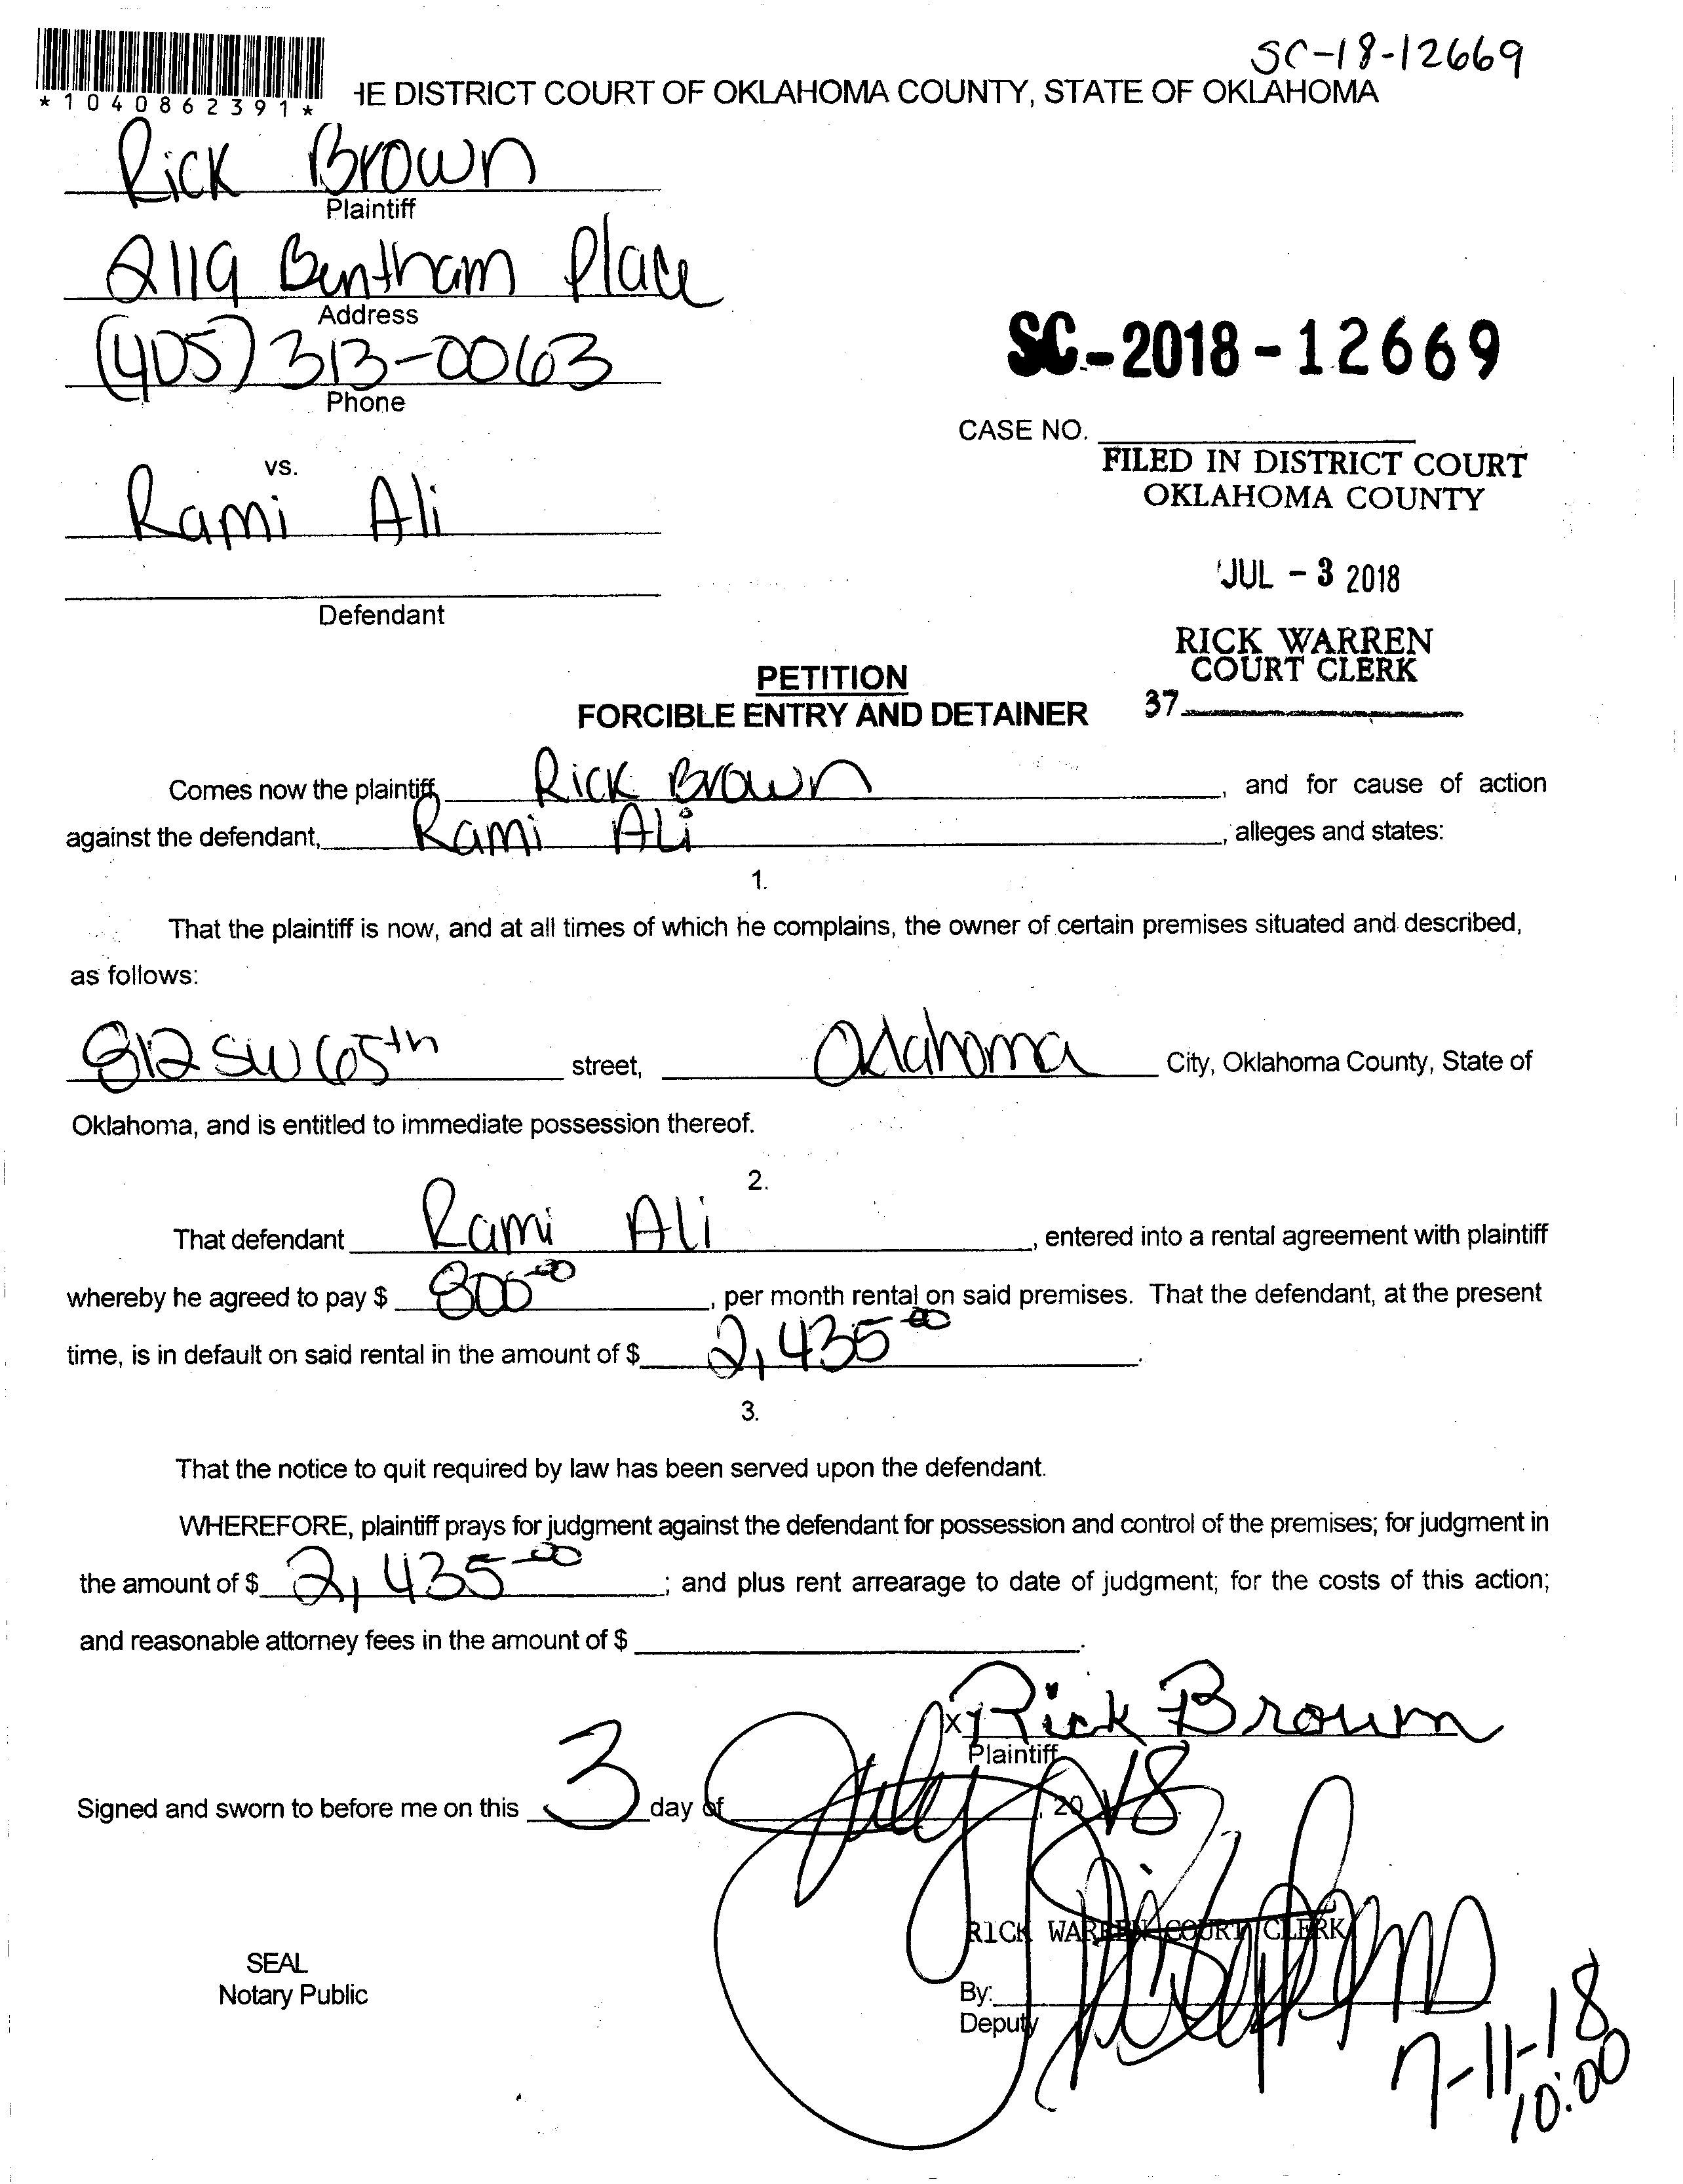 SC-18-12669
*1040862391*
HE DISTRICT COURT OF OKLAHOMA COUNTY, STATE OF OKLAHOMA
Rick Brown
Plaintiff
2119 Bentham Place
Address
(405) 313-0063
Phone
SC-2018-12669
CASE NO.
FILED IN DISTRICT COURT
OKLAHOMA COUNTY
vs.
Rami Ali
JUL - 3 2018
Defendant
RICK WARREN
COURT CLERK
37
PETITION
FORCIBLE ENTRY AND DETAINER
Comes now the plaintiff, Rick Brown, and for cause of action
against the defendant, Rami Ali, alleges and states:
1.
That the plaintiff is now, and at all times of which he complains, the owner of certain premises situated and described,
as follows:
812 SW 65th street, Oklahoma City, Oklahoma County, State of
Oklahoma, and is entitled to immediate possession thereof.
2.
That defendant Rami Ali, entered into a rental agreement with plaintiff
whereby he agreed to pay $ 800.00, per month rental on said premises. That the defendant, at the present
time, is in default on said rental in the amount of $ 2,435.00.
3.
That the notice to quit required by law has been served upon the defendant.
WHEREFORE, plaintiff prays for judgment against the defendant for possession and control of the premises; for judgment in
the amount of $ 2,435.00; and plus rent arrearage to date of judgment; for the costs of this action;
and reasonable attorney fees in the amount of $ .
x Rick Brown
Plaintiff
Signed and sworn to before me on this 3 day of July, 2018.
RICK WARREN COURT CLERK
SEAL
Notary Public
By:
Deputy
7-11-18
10:00